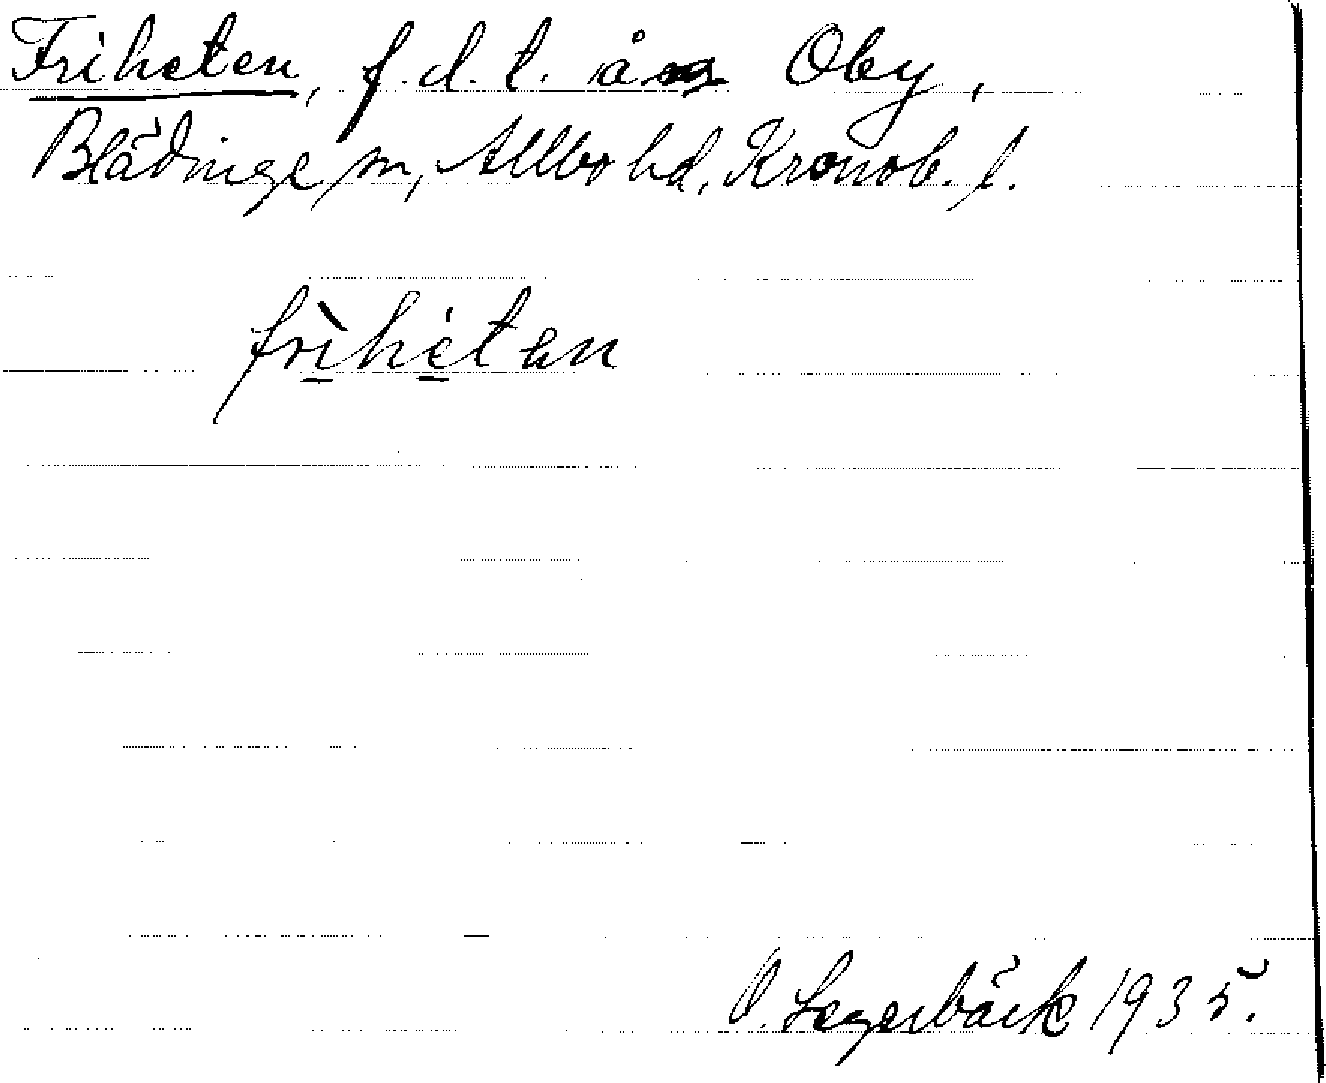 Friheten, f.d.t. å Oby,
Blädinge sn, Allbo hd, Kronob. l.
frìhéten
O. Segerbäck 1935.